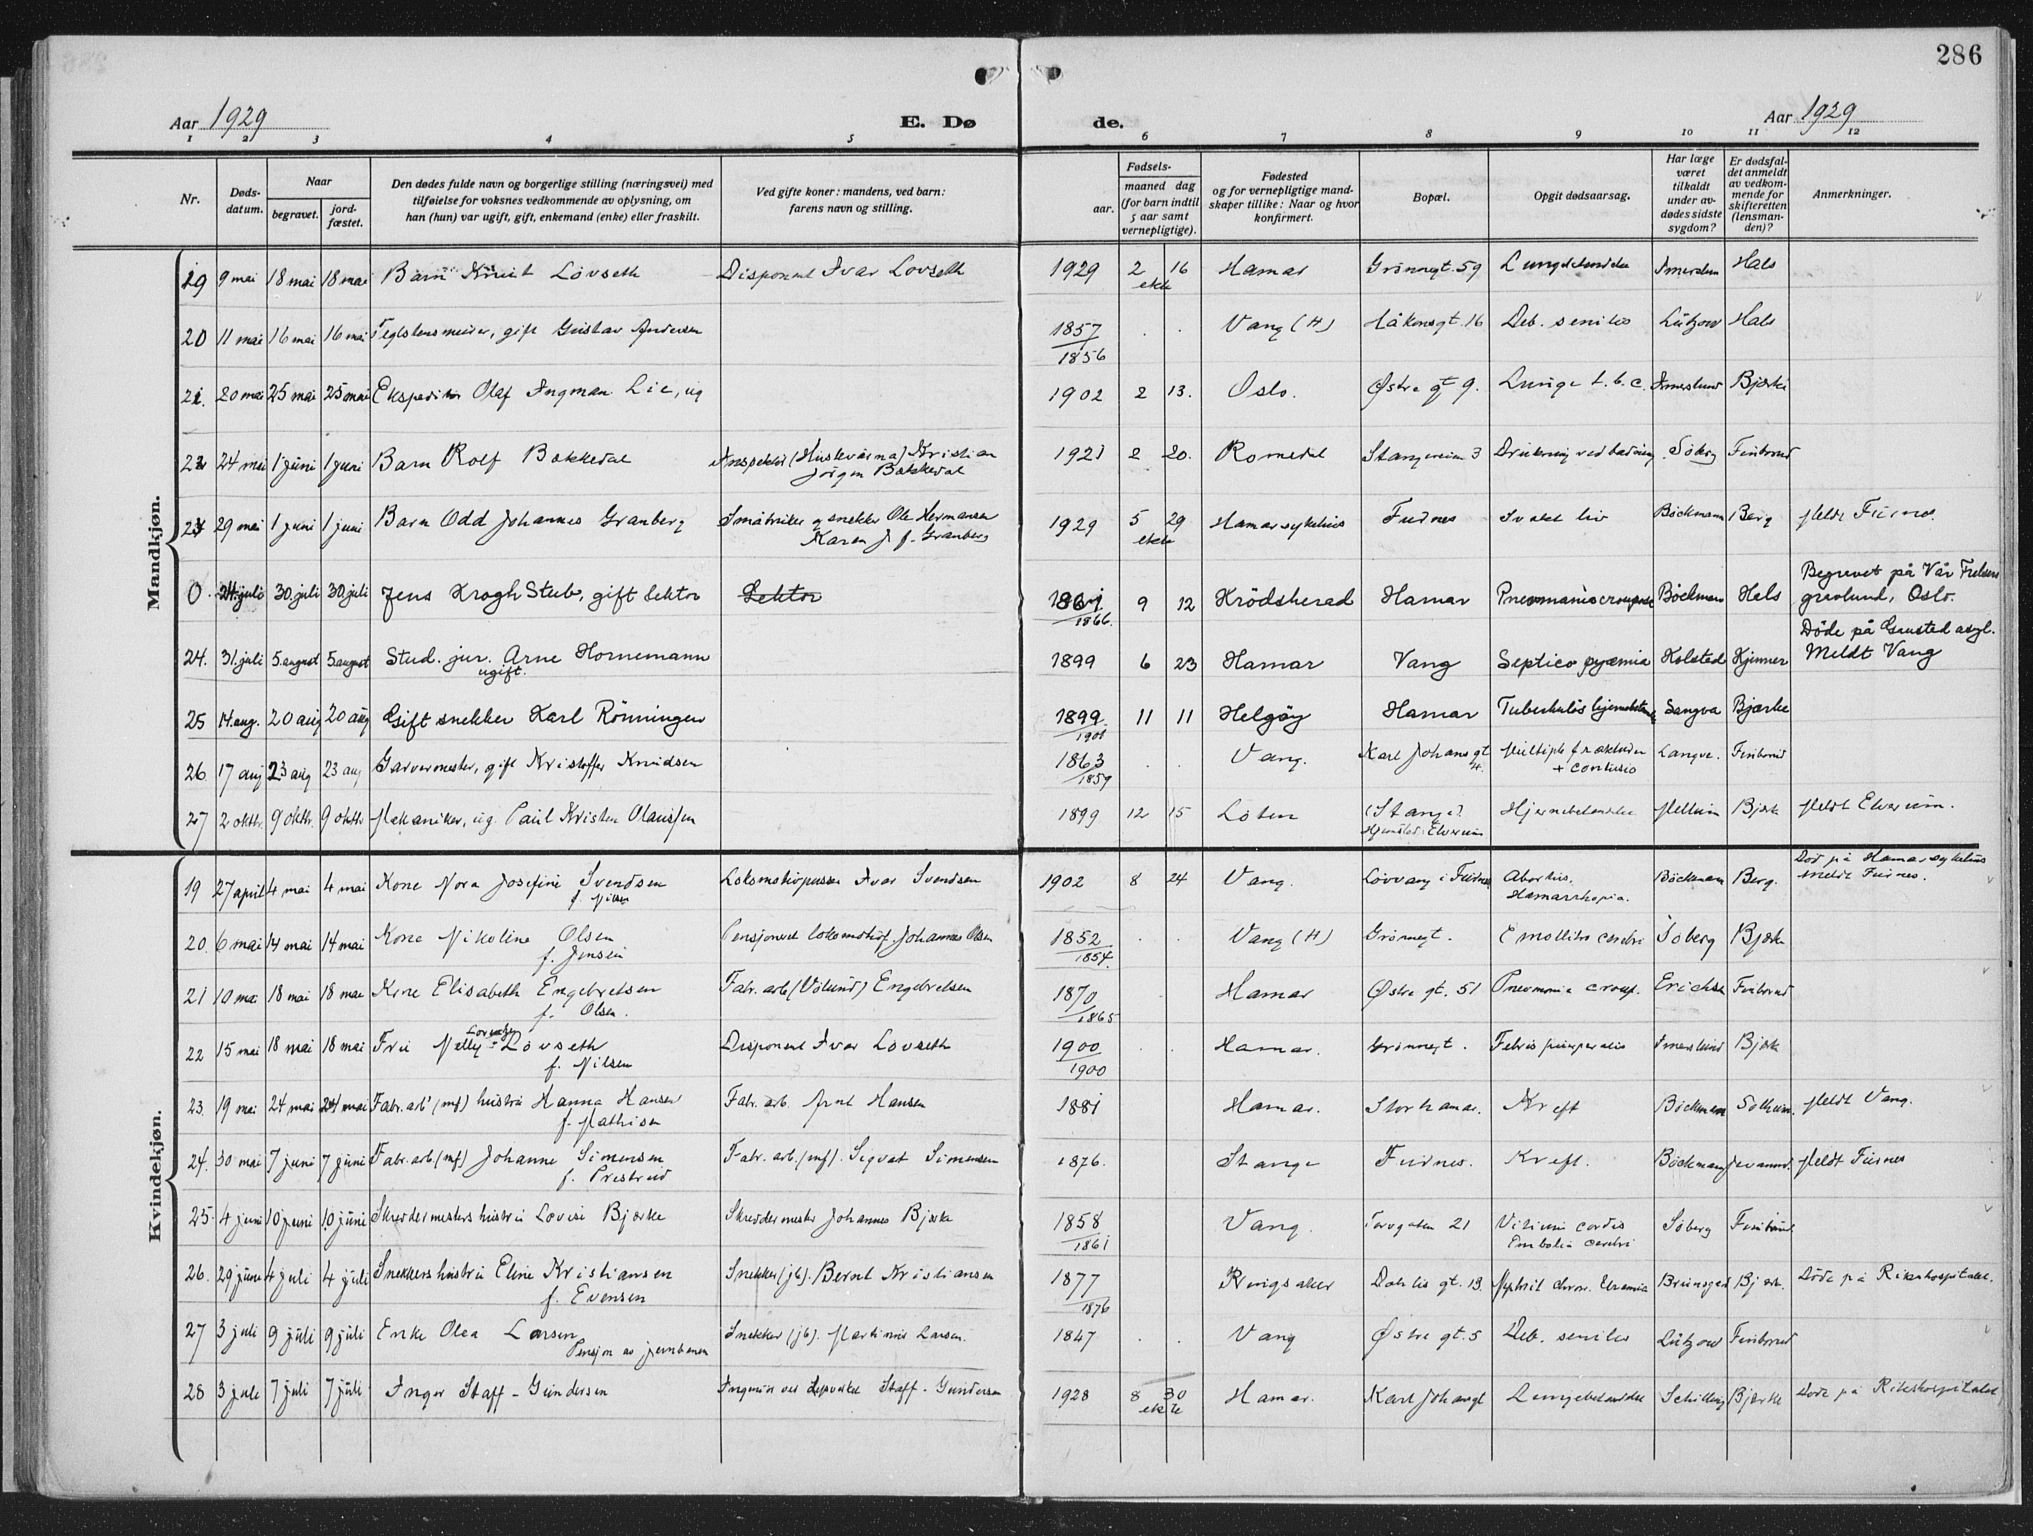 286
Aar 1929
E. Dø
de.
Aar 1929
1 2 3 4 5 6 7 8 9 10 11 12
Nr.
Døds-
datum.
Naar
begravet.
jord-
fæstet.
Den dødes fulde navn og borgerlige stilling (næringsvei) med
tilføielse for voksnes vedkommende av oplysning, om
han (hun) var ugift, gift, enkemand (enke) eller fraskilt.
Ved gifte koner: mandens, ved barn:
farens navn og stilling.
Fødsels-
aar.
maaned dag
(for barn indtil
5 aar samt
vernepligtige).
Fødested
og for vernepligtige mand-
skaper tillike: Naar og hvor
konfirmert.
Bopæl.
Opgit dødsaarsag.
Har læge
været
tilkaldt
under av-
dødes sidste
sygdom?
Er dødsfal-
det anmeldt
av vedkom-
mende for
skifteretten
(lensman-
den)?
Anmerkninger.
Mandkjøn.
19 9 mai 18 mai 18 mai Barn Knut Lövseth Disponent Ivar Lovseth 1929 2 16 Hamar Grönnegt. 59 Hals
ekte
20 11 mai 16 mai 16 mai gift Gustav Andersen 1857 Vang (H) Håkonsgt. 16 Deb. senilis Lützow Hals
1856
21. 20 mai 25 mai 25 mai Ekspeditör Olaf Ingman Lie, ug 1902 2 13. Oslo. Østre gt 9. Lunge t.b.c. Imerslund Bjærke
22 24 mai 1 juni 1 juni Barn Rolf Bakkedal Inspektör Kristian 1921 2 20. Romedal 3 Drukning ved badning Soberg Finborud
Jörgen Bakkedal
23 29 mai 1 juni 1 juni Barn Odd Johannes Granberg Småbruker og snekker Ole Hermansen 1929 5 29 Hamar sykehus Furnes Svakt liv Böckmann Berg Meldt Furnes.
Karen J. f. Granberg ekte
0. 24 juli 30. juli 30. juli Jens Krogh Stub, gift Lektor Lektor 1861 9 12 Krödsherad Hamar Böckman Hals Begravet på Vår Frelsers
1866. gravlund, Oslo.
24. 31. juli 5. august 5. august Stud. jur. Arne Hornemann 1899 6 23 Hamar Vang Septico pyæmia Holsted Kjenner Döde på Gausted asyl.
ugift. Meldt Vang
25 14. aug. 20 aug 20 aug Gift snekker Karl Rönningen 1899 11 11 Helgöy Hamar Tuberkulös Sangva Bjærke
1901
26. 17 aug 23 aug 23 aug Garvermester, gift Kristoffer Knudsen 1863 Vang. Karl Johans gt Multiple frakturer Langva. Finborud
1859 + contusio
27 2 oktbr. 9 oktbr. 9 oktbr Mekaniker, ug. Paul Kristen Olaussen 1899 12 15 Löten (Stange) Hjernebetændelse Mellum Bjærke Meldt Elverum.
Elverum
Kvindekjøn.
19 27 april 4 mai 4 mai Kone Nora Josefine Svendsen Lokomotivpusser Ivar Svendsen 1902 8 24 Vang. Lövvang i Furnes Abortus. Böckmann Berg. Död på Hamar sykehus
f. Nilsen Meldt Furnes.
20. 6 mai 14 mai 14 mai Kone Nikoline Olsen Pensjonert lokomotivf. Johannes Olsen 1852 Vang (H) Grönnegt. Emollitio cerebri Soberg Bjærke
f. Jensen 1854.
21 10 mai 18 mai 18 mai Kone Elisabeth Engebretsen Fabr. arb (Völund) Engebretsen 1870 Hamar Østre gt. 51 Pneumonia croup. Erichsen Finborud
f. Olsen. 1865
22 15 mai 18 mai 18 mai Fru Nelly Lovseth Disponent Ivar Lovseth 1900 Hamar. Grönnegt. Febris puerperalis Imerslund Bjærke
f. Nilsen 1900
23. 19 mai 24 mai 24 mai Fabr. arb. (mf) hustru Hanna Hansen Fabr. arb. Arne Hansen 1881 Hamar. Storhamar. Kreft Böckman Solheim. Meldt Vang.
f. Mathisen
24. 30 mai 7 juni 7 juni Fabr. arb (mf) Johanne Simensen Fabr. arb. (mf). Sigvat Simensen 1876. Stange Furnes. Kreft. Böckmann Meldt Furnes
f. Prestrud
25. 4 juni 10 juni 10 juni Skreddermesters hustru Lovise Bjærke Skreddermester Johannes Bjærke 1858 Vang. Torvgaten 21 Vitium cordis Soberg Finborud
1861 Embolia cerebri
26. 29 juni 4 juli 4 juli Snekkers hustru Eline Kristiansen Snekker (jb). Bernt Kristiansen 1877 Ringsaker gt. 13. Nephrit chron. Uræmia Bjærke. Döde på Rikshospitalet.
f. Evensen 1876
27 3 juli 9 juli 9 juli Enke Olea Larsen Snekker (jb). Martinus Larsen. 1847 Vang Østre gt. 5 Deb. senilis Lützow Finborud
Pensjon av jernbanen
28 3 juli 7 juli 7 juli Inger Staff-Gundersen Ingeniör Staff-Gundersen 1928 8 30 Hamar. Karl Johansgt Lungebetændelse Schilling Bjærke Döde på Rikshospitalet
ekte